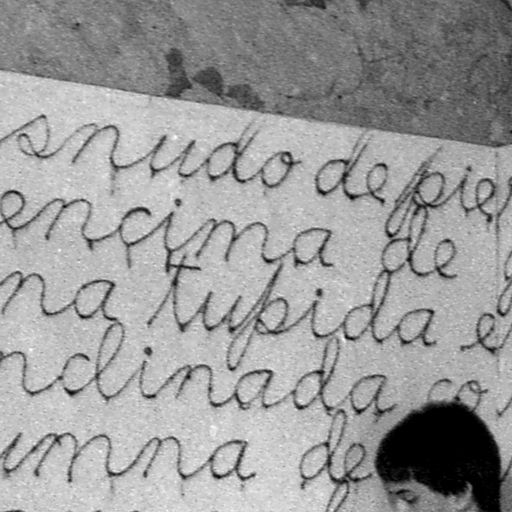 snudo de pie
ençima de
na tupida e
nclinada co
umna de